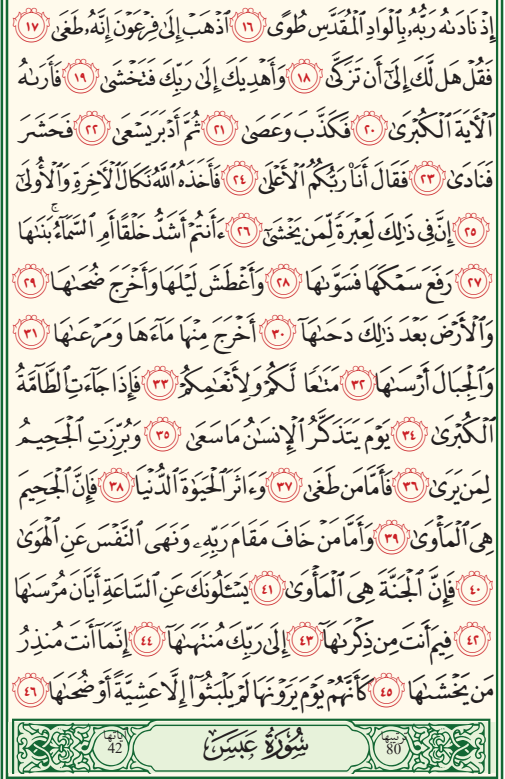 إِذْ نَادَىٰهُ رَبُّهُۥ بِٱلْوَادِ ٱلْمُقَدَّسِ طُوًى ١٦ ٱذْهَبْ إِلَىٰ فِرْعَوْنَ إِنَّهُۥ طَغَىٰ ١٧
فَقُلْ هَل لَّكَ إِلَىٰٓ أَن تَزَكَّىٰ ١٨ وَأَهْدِيَكَ إِلَىٰ رَبِّكَ فَتَخْشَىٰ ١٩ فَأَرَىٰهُ
ٱلْأٓيَةَ ٱلْكُبْرَىٰ ٢٠ فَكَذَّبَ وَعَصَىٰ ٢١ ثُمَّ أَدْبَرَ يَسْعَىٰ ٢٢ فَحَشَرَ
فَنَادَىٰ ٢٣ فَقَالَ أَنَا۠ رَبُّكُمُ ٱلْأَعْلَىٰ ٢٤ فَأَخَذَهُ ٱللَّهُ نَكَالَ ٱلْأٓخِرَةِ وَٱلْأُولَىٰٓ
٢٥ إِنَّ فِى ذَٰلِكَ لَعِبْرَةً لِّمَن يَخْشَىٰٓ ٢٦ ءَأَنتُمْ أَشَدُّ خَلْقًا أَمِ ٱلسَّمَآءُ ۚ بَنَىٰهَا
٢٧ رَفَعَ سَمْكَهَا فَسَوَّىٰهَا ٢٨ وَأَغْطَشَ لَيْلَهَا وَأَخْرَجَ ضُحَىٰهَا ٢٩
وَٱلْأَرْضَ بَعْدَ ذَٰلِكَ دَحَىٰهَآ ٣٠ أَخْرَجَ مِنْهَا مَآءَهَا وَمَرْعَىٰهَا ٣١
وَٱلْجِبَالَ أَرْسَىٰهَا ٣٢ مَتَـٰعًا لَّكُمْ وَلِأَنْعَـٰمِكُمْ ٣٣ فَإِذَا جَآءَتِ ٱلطَّآمَّةُ
ٱلْكُبْرَىٰ ٣٤ يَوْمَ يَتَذَكَّرُ ٱلْإِنسَـٰنُ مَا سَعَىٰ ٣٥ وَبُرِّزَتِ ٱلْجَحِيمُ
لِمَن يَرَىٰ ٣٦ فَأَمَّا مَن طَغَىٰ ٣٧ وَءَاثَرَ ٱلْحَيَوٰةَ ٱلدُّنْيَا ٣٨ فَإِنَّ ٱلْجَحِيمَ
هِىَ ٱلْمَأْوَىٰ ٣٩ وَأَمَّا مَنْ خَافَ مَقَامَ رَبِّهِۦ وَنَهَى ٱلنَّفْسَ عَنِ ٱلْهَوَىٰ
٤٠ فَإِنَّ ٱلْجَنَّةَ هِىَ ٱلْمَأْوَىٰ ٤١ يَسْـَٔلُونَكَ عَنِ ٱلسَّاعَةِ أَيَّانَ مُرْسَىٰهَا
٤٢ فِيمَ أَنتَ مِن ذِكْرَىٰهَآ ٤٣ إِلَىٰ رَبِّكَ مُنتَهَىٰهَآ ٤٤ إِنَّمَآ أَنتَ مُنذِرُ
مَن يَخْشَىٰهَا ٤٥ كَأَنَّهُمْ يَوْمَ يَرَوْنَهَا لَمْ يَلْبَثُوٓا۟ إِلَّا عَشِيَّةً أَوْ ضُحَىٰهَا ٤٦
ترتيبها 80 سُورَةُ عَبَسَ آياتها 42